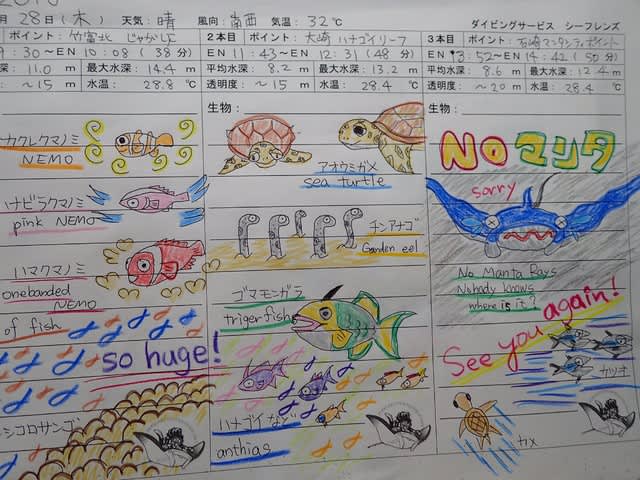 2010
28日(木) 天気: 晴 風向: 南西 気温: 32℃
ダイビングサービス シーフレンズ
ポイント: 竹富北 じゃがじゃ
9:30~EN 10:08 (38分)
深: 11.0 m 最大水深: 14.4 m
~15 m 水温: 28.8 ℃
カクレクマノミ
NEMO
ハナビラクマノミ
pink NEMO
ハマクマノミ
onebanded
NEMO
of fish
so huge!
シコロサンゴ
2本目 ポイント: 大崎 ハナゴイリーフ
EN 11:43~EN 12:31 (48分)
平均水深: 8.2 m 最大水深: 13.2 m
透明度: ~15 m 水温: 28.4 ℃
生物:
アオウミガメ
sea turtle
チンアナゴ
Garden eel
ゴマモンガラ
trigerfish
ハナゴイなど
anthias
3本目 ポイント: 石崎マンタシティポイント
EN 13:52~EN 14:42 (50分)
平均水深: 8.6 m 最大水深: 12.4 m
透明度: ~20 m 水温: 28.4 ℃
生物:
No マンタ
sorry
No Manta Rays
Nobady knows
where is it?
See you again!
カツオ
カメ